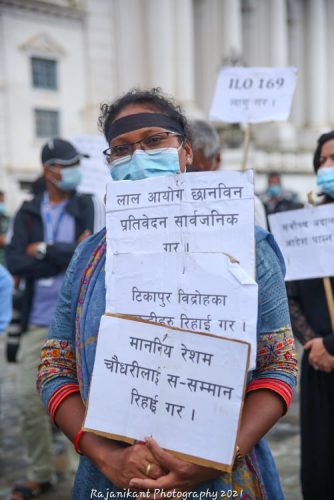 ILO 169
लागू गर ।
लाल आयोग छानविन
प्रतिवेदन सार्वजनिक
गर ।
टिकापुर विद्रोहका
रिहाई गर ।
माननिय रेशम
चौधरीलाई स-सम्मान
रिहाई गर ।
सर्वोच्च अदा
आदेश पाल
Rajanikant Photography 2021